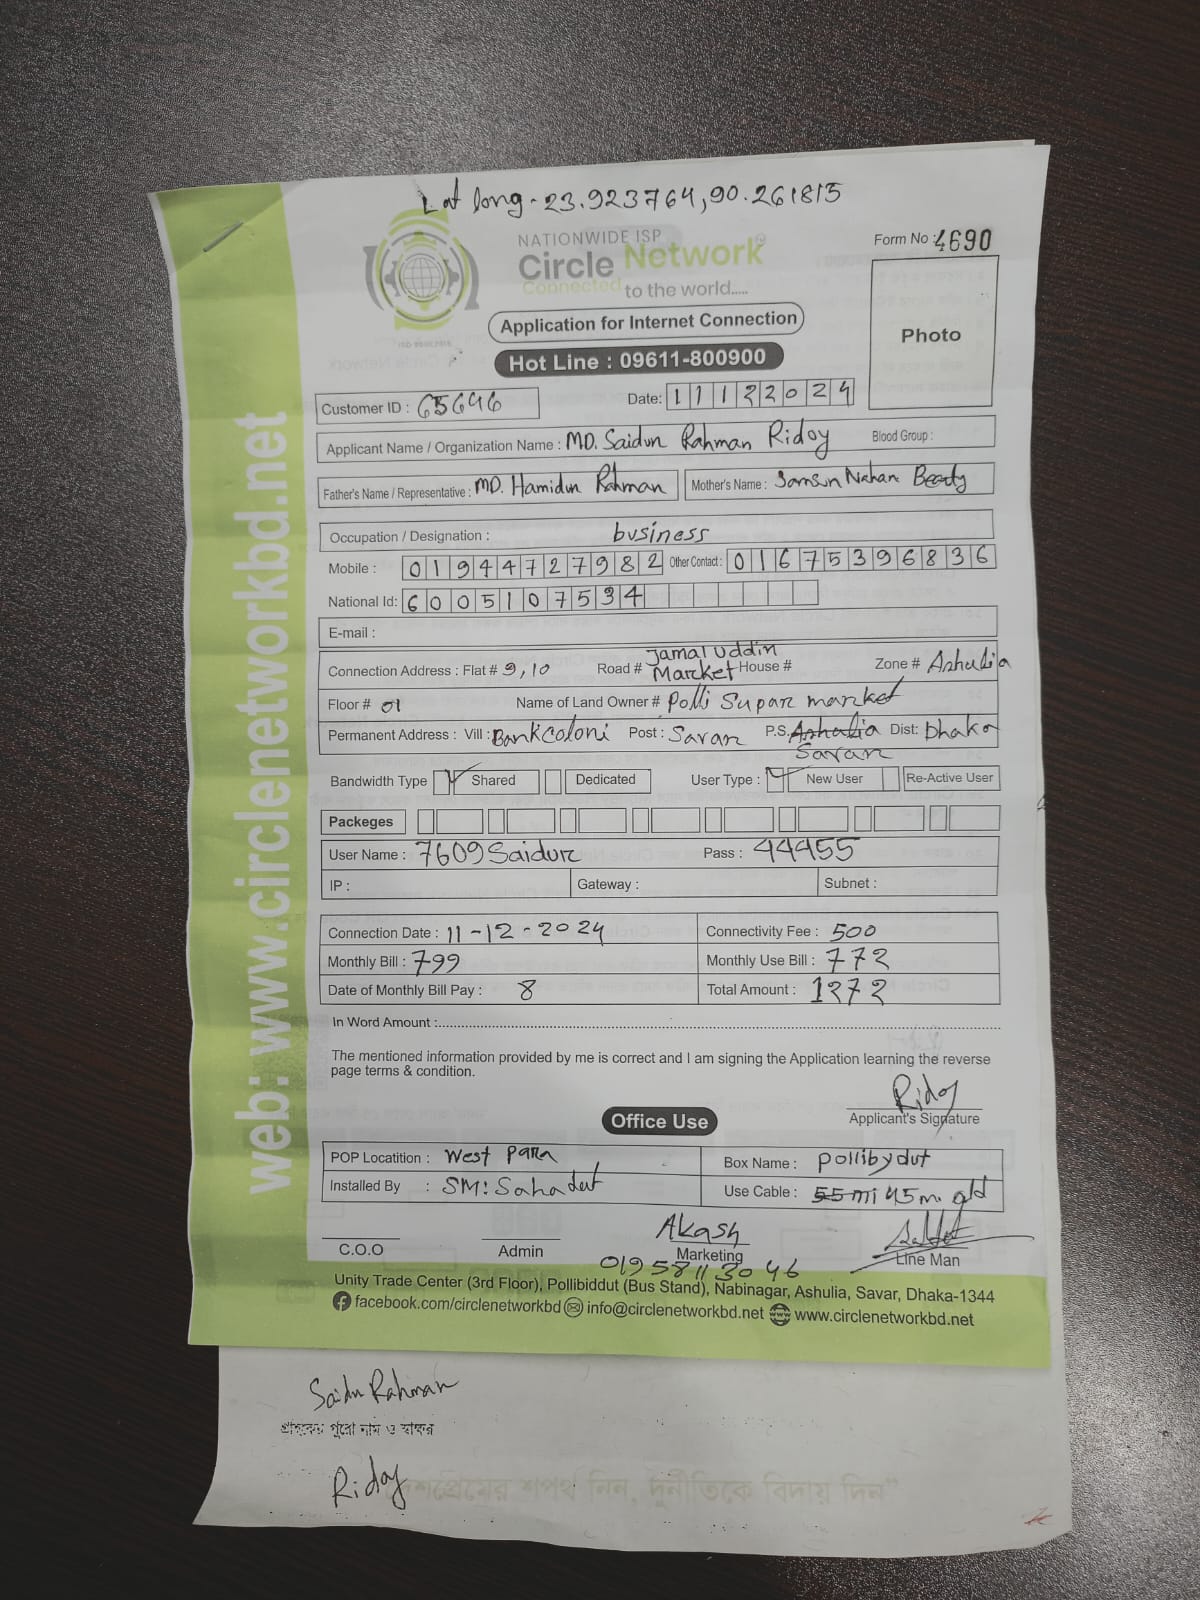 Lat long - 23.923764, 90.261815
NATIONWIDE ISP
Circle Network
Connected to the world.....
Form No : 4690
Photo
Application for Internet Connection
Hot Line : 09611-800900
Customer ID : 65646
Date: 11122024
Applicant Name / Organization Name : MD. Saidur Rahman Ridoy Blood Group :
Father's Name / Representative : MD. Hamidur Rahman Mother's Name : Samsun Nahar Beauty
Occupation / Designation : business
Mobile : 01944727982 Other Contact : 01675396836
National Id: 6005107534
E-mail :
Connection Address : Flat # 9,10 Road # Jamal Uddin Marcket House # Zone # Ashulia
Floor # 01 Name of Land Owner # Polli Supar market
Permanent Address : Vill : Bankcoloni Post : Savar P.S. Ashalia Savar Dist: Dhaka
Bandwidth Type Shared Dedicated User Type : New User Re-Active User
Packeges
User Name : 7609Saidur Pass : 44455
IP : Gateway : Subnet :
Connection Date : 11-12-2024 Connectivity Fee : 500
Monthly Bill : 799 Monthly Use Bill : 772
Date of Monthly Bill Pay : 8 Total Amount : 1272
In Word Amount :
The mentioned information provided by me is correct and I am signing the Application learning the reverse
page terms & condition.
Ridoy
Applicant's Signature
Office Use
POP Locatition : West Para Box Name : pollibydut
Installed By : SM: Sahadut Use Cable : 55 mi 45 m. old
C.O.O Admin Akash Marketing Line Man
01958113046
Unity Trade Center (3rd Floor), Pollibiddut (Bus Stand), Nabinagar, Ashulia, Savar, Dhaka-1344
facebook.com/circlenetworkbd info@circlenetworkbd.net www.circlenetworkbd.net
web: www.circlenetworkbd.net
Saidur Rahman
গ্রাহকের পুরো নাম ও স্বাক্ষর
Ridoy
দেশপ্রেমের শপথ নিন, দুর্নীতিকে বিদায় দিন"